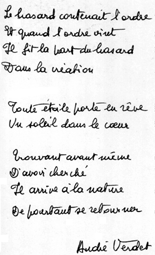 Le hasard contenait l'ordre
Et quand l'ordre vint
Il fit la part du hasard
Dans la création
Toute étoile porte en rêve
Un soleil dans le cœur
Trouvant avant même
D'avoir cherché
Il arrive à la nature
De pourtant se retourner
André Verdet